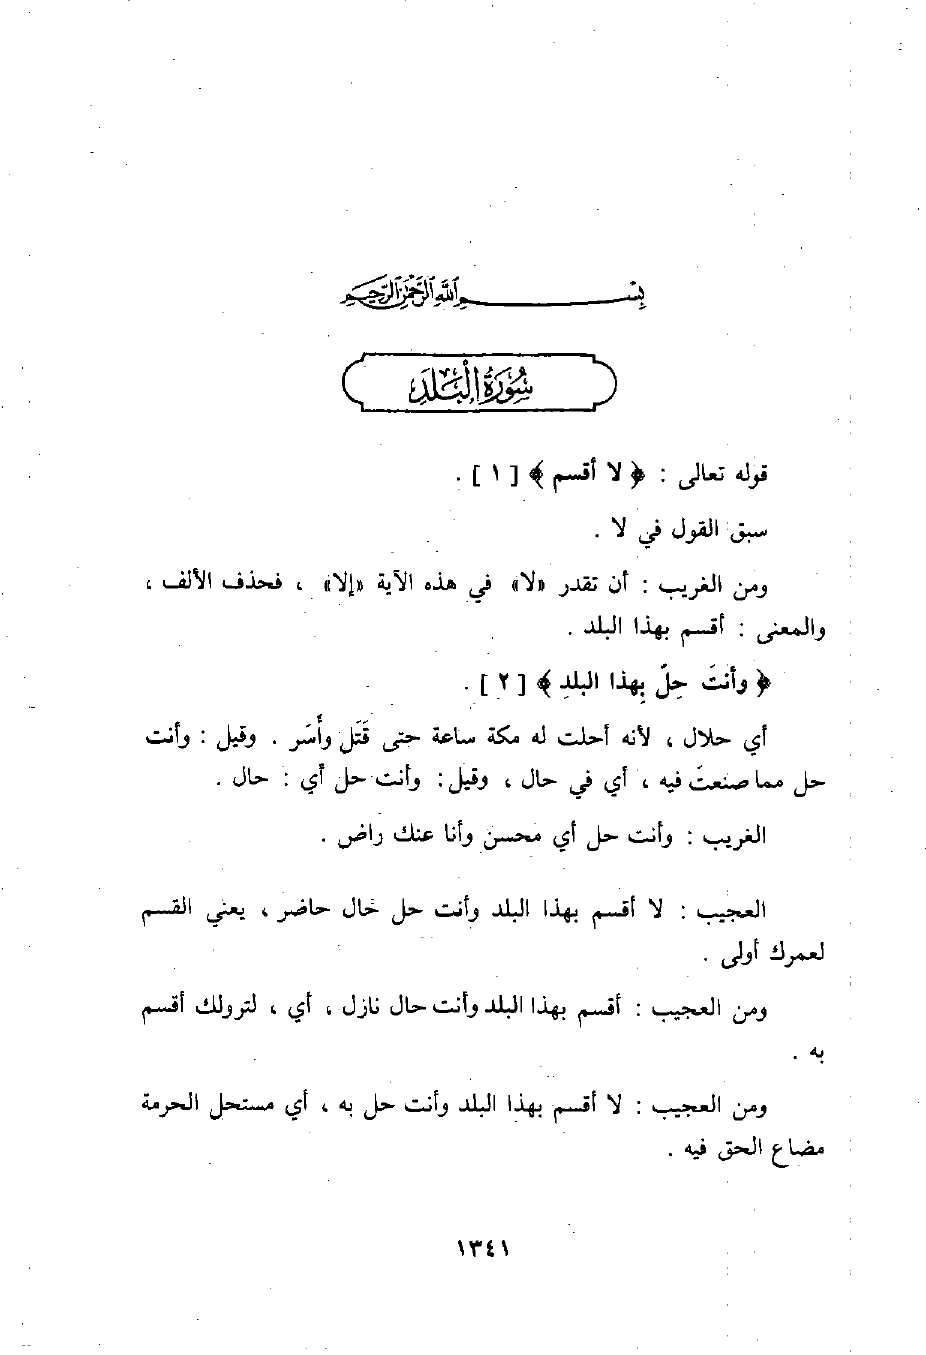 بسم الله الرحمن الرحيم
سُورَةُ البَلَدِ
قوله تعالى : ﴿ لا أقسم ﴾ [ ١ ] .
سبق القول في لا .
ومن الغريب : أن تقدر «لا» في هذه الآية «إلا» ، فحذف الألف ،
والمعنى : أقسم بهذا البلد .
﴿ وأنتَ حِلّ بِهذا البلدِ ﴾ [ ٢ ] .
أي حلال ، لأنه أحلت له مكة ساعة حتى قَتَل وأَسَر . وقيل : وأنت
حل مما صنعتَ فيه ، أي في حال ، وقيل : وأنت حل أي : حال .
الغريب : وأنت حل أي محسن وأنا عنك راض .
العجيب : لا أقسم بهذا البلد وأنت حل خال حاضر ، يعني القسم
لعمرك أولى .
ومن العجيب : أقسم بهذا البلد وأنت حال نازل ، أي ، لترولك أقسم
به .
ومن العجيب : لا أقسم بهذا البلد وأنت حل به ، أي مستحل الحرمة
مضاع الحق فيه .
١٣٤١